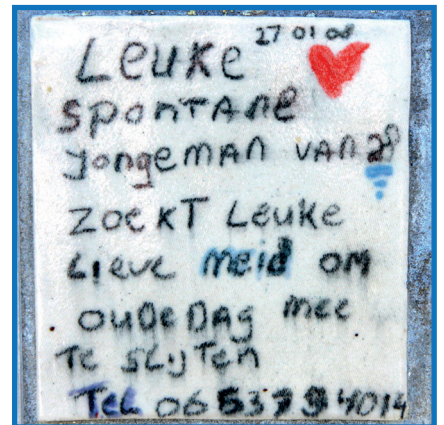 27 01 08
LEUKE
SPONTANE
JONGEMAN VAN 28
ZOEKT LEUKE
LIEVE MEID OM
OUDEDAG MEE
TE SLIJTEN
TEL 06 53799 4014